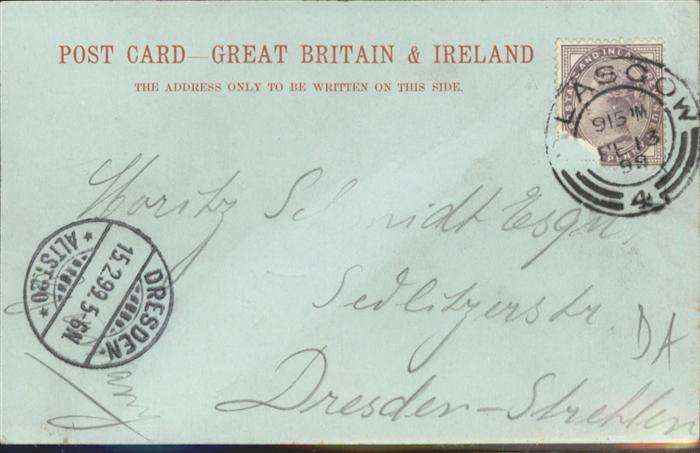 POST CARD—GREAT BRITAIN & IRELAND
THE ADDRESS ONLY TO BE WRITTEN ON THIS SIDE.
LASGOW
915 M
FE 13
99
4
Moritz Schmidt Esqu.
Sedlitzerstr.
Dresden-Strehlen
DA
DRESDEN
15.2.99.5-6N.
* ALTST.20 *